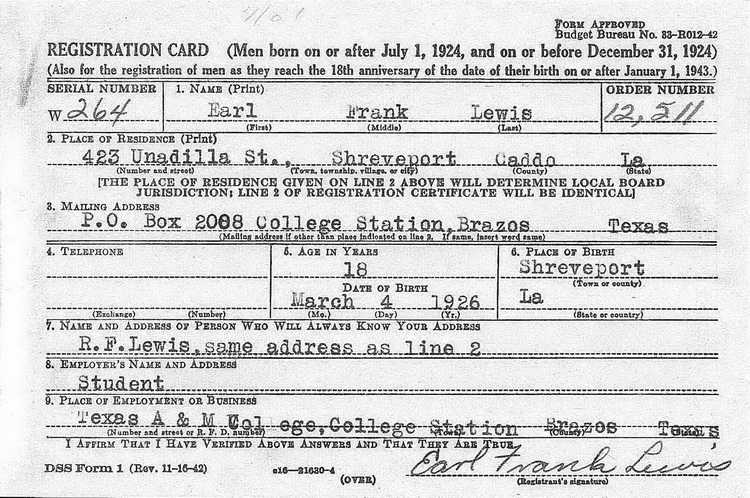 FORM APPROVED
Budget Bureau No. 33-R012-42
REGISTRATION CARD (Men born on or after July 1, 1924, and on or before December 31, 1924)
(Also for the registration of men as they reach the 18th anniversary of the date of their birth on or after January 1, 1943.)
SERIAL NUMBER 1. NAME (Print) ORDER NUMBER
W 264 Earl Frank Lewis 12,511
(First) (Middle) (Last)
2. PLACE OF RESIDENCE (Print)
423 Unadilla St., Shreveport Caddo La
(Number and street) (Town, township, village, or city) (County) (State)
[THE PLACE OF RESIDENCE GIVEN ON LINE 2 ABOVE WILL DETERMINE LOCAL BOARD
JURISDICTION; LINE 2 OF REGISTRATION CERTIFICATE WILL BE IDENTICAL]
3. MAILING ADDRESS
P.O. Box 2008 College Station, Brazos Texas
(Mailing address if other than place indicated on line 2. If same, insert word same)
4. TELEPHONE 5. AGE IN YEARS 6. PLACE OF BIRTH
18 Shreveport
DATE OF BIRTH (Town or county)
March 4 1926 La
(Exchange) (Number) (Mo.) (Day) (Yr.) (State or country)
7. NAME AND ADDRESS OF PERSON WHO WILL ALWAYS KNOW YOUR ADDRESS
R.F.Lewis, same address as line 2
8. EMPLOYER'S NAME AND ADDRESS
Student
9. PLACE OF EMPLOYMENT OR BUSINESS
Texas A & M College, College Station Brazos Texas
(Number and street or R. F. D. number) (Town) (County) (State)
I AFFIRM THAT I HAVE VERIFIED ABOVE ANSWERS AND THAT THEY ARE TRUE.
DSS Form 1 (Rev. 11-16-42) c16—21630-4 Earl Frank Lewis
(OVER) (Registrant's signature)